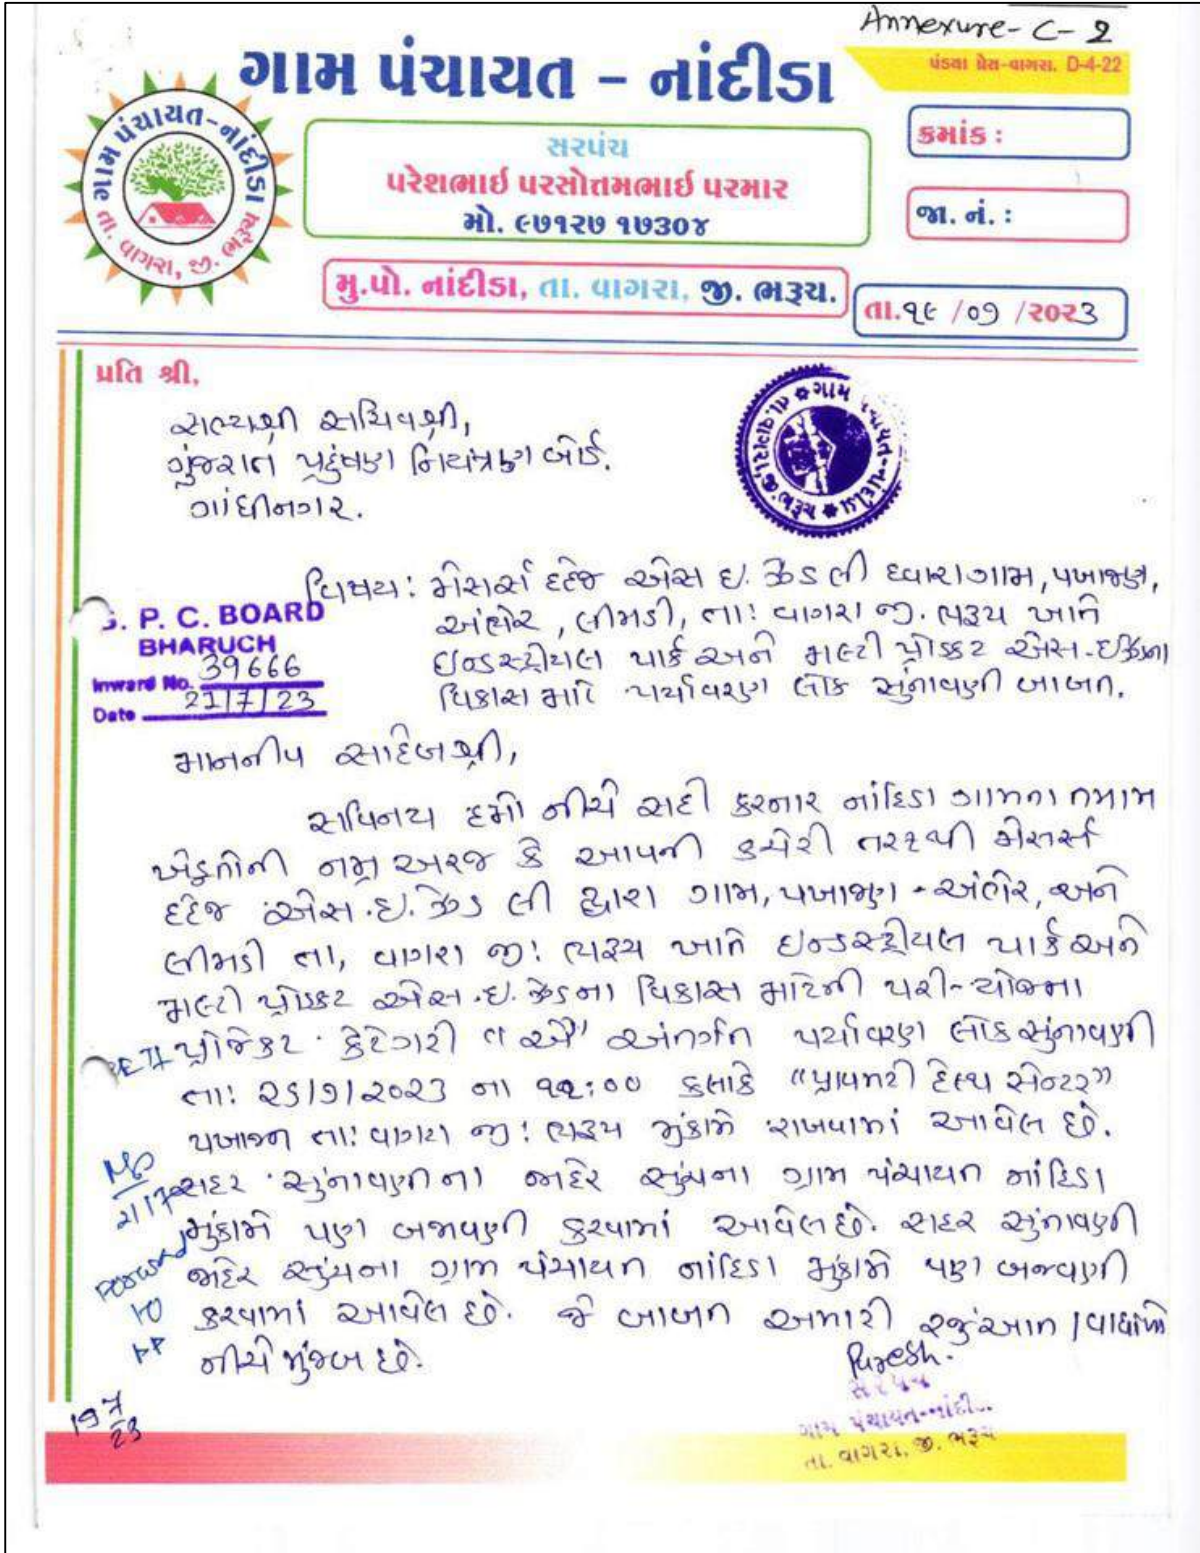 Annexure- C- 2
ગામ પંચાયત – નાંદીડા
પંડયા પ્રેસ-વાગરા. D-4-22
ગામ પંચાયત-નાંદીડા
તા. વાગરા, જી. ભરૂચ
સરપંચ
પરેશભાઈ પરસોતમભાઈ પરમાર
મો. ૯૭૧૨૭ ૧૭૩૦૪
ક્રમાંક :
જા. નં. :
મુ.પો. નાંદીડા, તા. વાગરા, જી. ભરૂચ.
તા.૧૯ /૦૭ /૨૦૨૩
પ્રતિ શ્રી,
સભ્યશ્રી સચિવશ્રી,
ગુંજરાત પ્રદુંષણ નિયંત્રણ બોર્ડ.
ગાંધીનગર.
ગામ પંચાયત-નાંદીડા
તા. વાગરા, જી. ભરૂચ
વિષય: મેસર્સ દહેજ એસ ઇ. ઝેડ લી ધ્વારા ગામ, પખાજણ,
અંભેર, લીમડી, તા: વાગરા જી. ભરૂચ ખાતે
ઇન્ડસ્ટ્રીયલ પાર્ક અને મલ્ટી પ્રોડકટ એસ.ઇ.ઝેડના
વિકાસ માટે પર્યાવરણ લોક સુંનાવણી બાબત.
G. P. C. BOARD
BHARUCH
Inward No. 39666
Date 21/7/23
માનનીય સાહેબશ્રી,
સવિનય હમો નીચે સહી કરનાર નાંદિડા ગામના તમામ
ખેડુતોની નમ્ર અરજ કે આપની કચેરી તરફથી મેસર્સ
દહેજ એસ.ઇ.ઝેડ લી દ્વારા ગામ, પખાજણ - અંભેર, અને
લીમડી તા, વાગરા જી: ભરૂચ ખાતે ઇન્ડસ્ટ્રીયલ પાર્ક અને
મલ્ટી પ્રોડકટ એસ.ઇ.ઝેડના વિકાસ માટેની પરી-યોજના
પ્રોજેકટ કેટેગરી "એ" અંતર્ગત પર્યાવરણ લોક સુંનાવણી
તા: ૨૬/૭/૨૦૨૩ ના ૧૧:૦૦ કલાકે "પ્રાયમરી હેલ્થ સેન્ટર"
પખાજન તા: વાગરા જી: ભરૂચ મુંકામે રાખવામાં આવેલ છે.
સદર સુંનાવણીના જાહેર સુંચના ગ્રામ પંચાયત નાંદિડા
મુંકામે પણ બજવણી કરવામાં આવેલ છે. સદર સુંનાવણી
જાહેર સુંચના ગ્રામ પંચાયત નાંદિડા મુંકામે પણ બજવણી
કરવામાં આવેલ છે. જે બાબત અમારી રજુંઆત / વાધાંઓ
નીચે મુંજબ છે.
21/7
Forward
to
Puresh.
સરપંચ
ગામ પંચાયત-નાંદી..
તા. વાગરા, જી. ભરૂચ
19 7/23